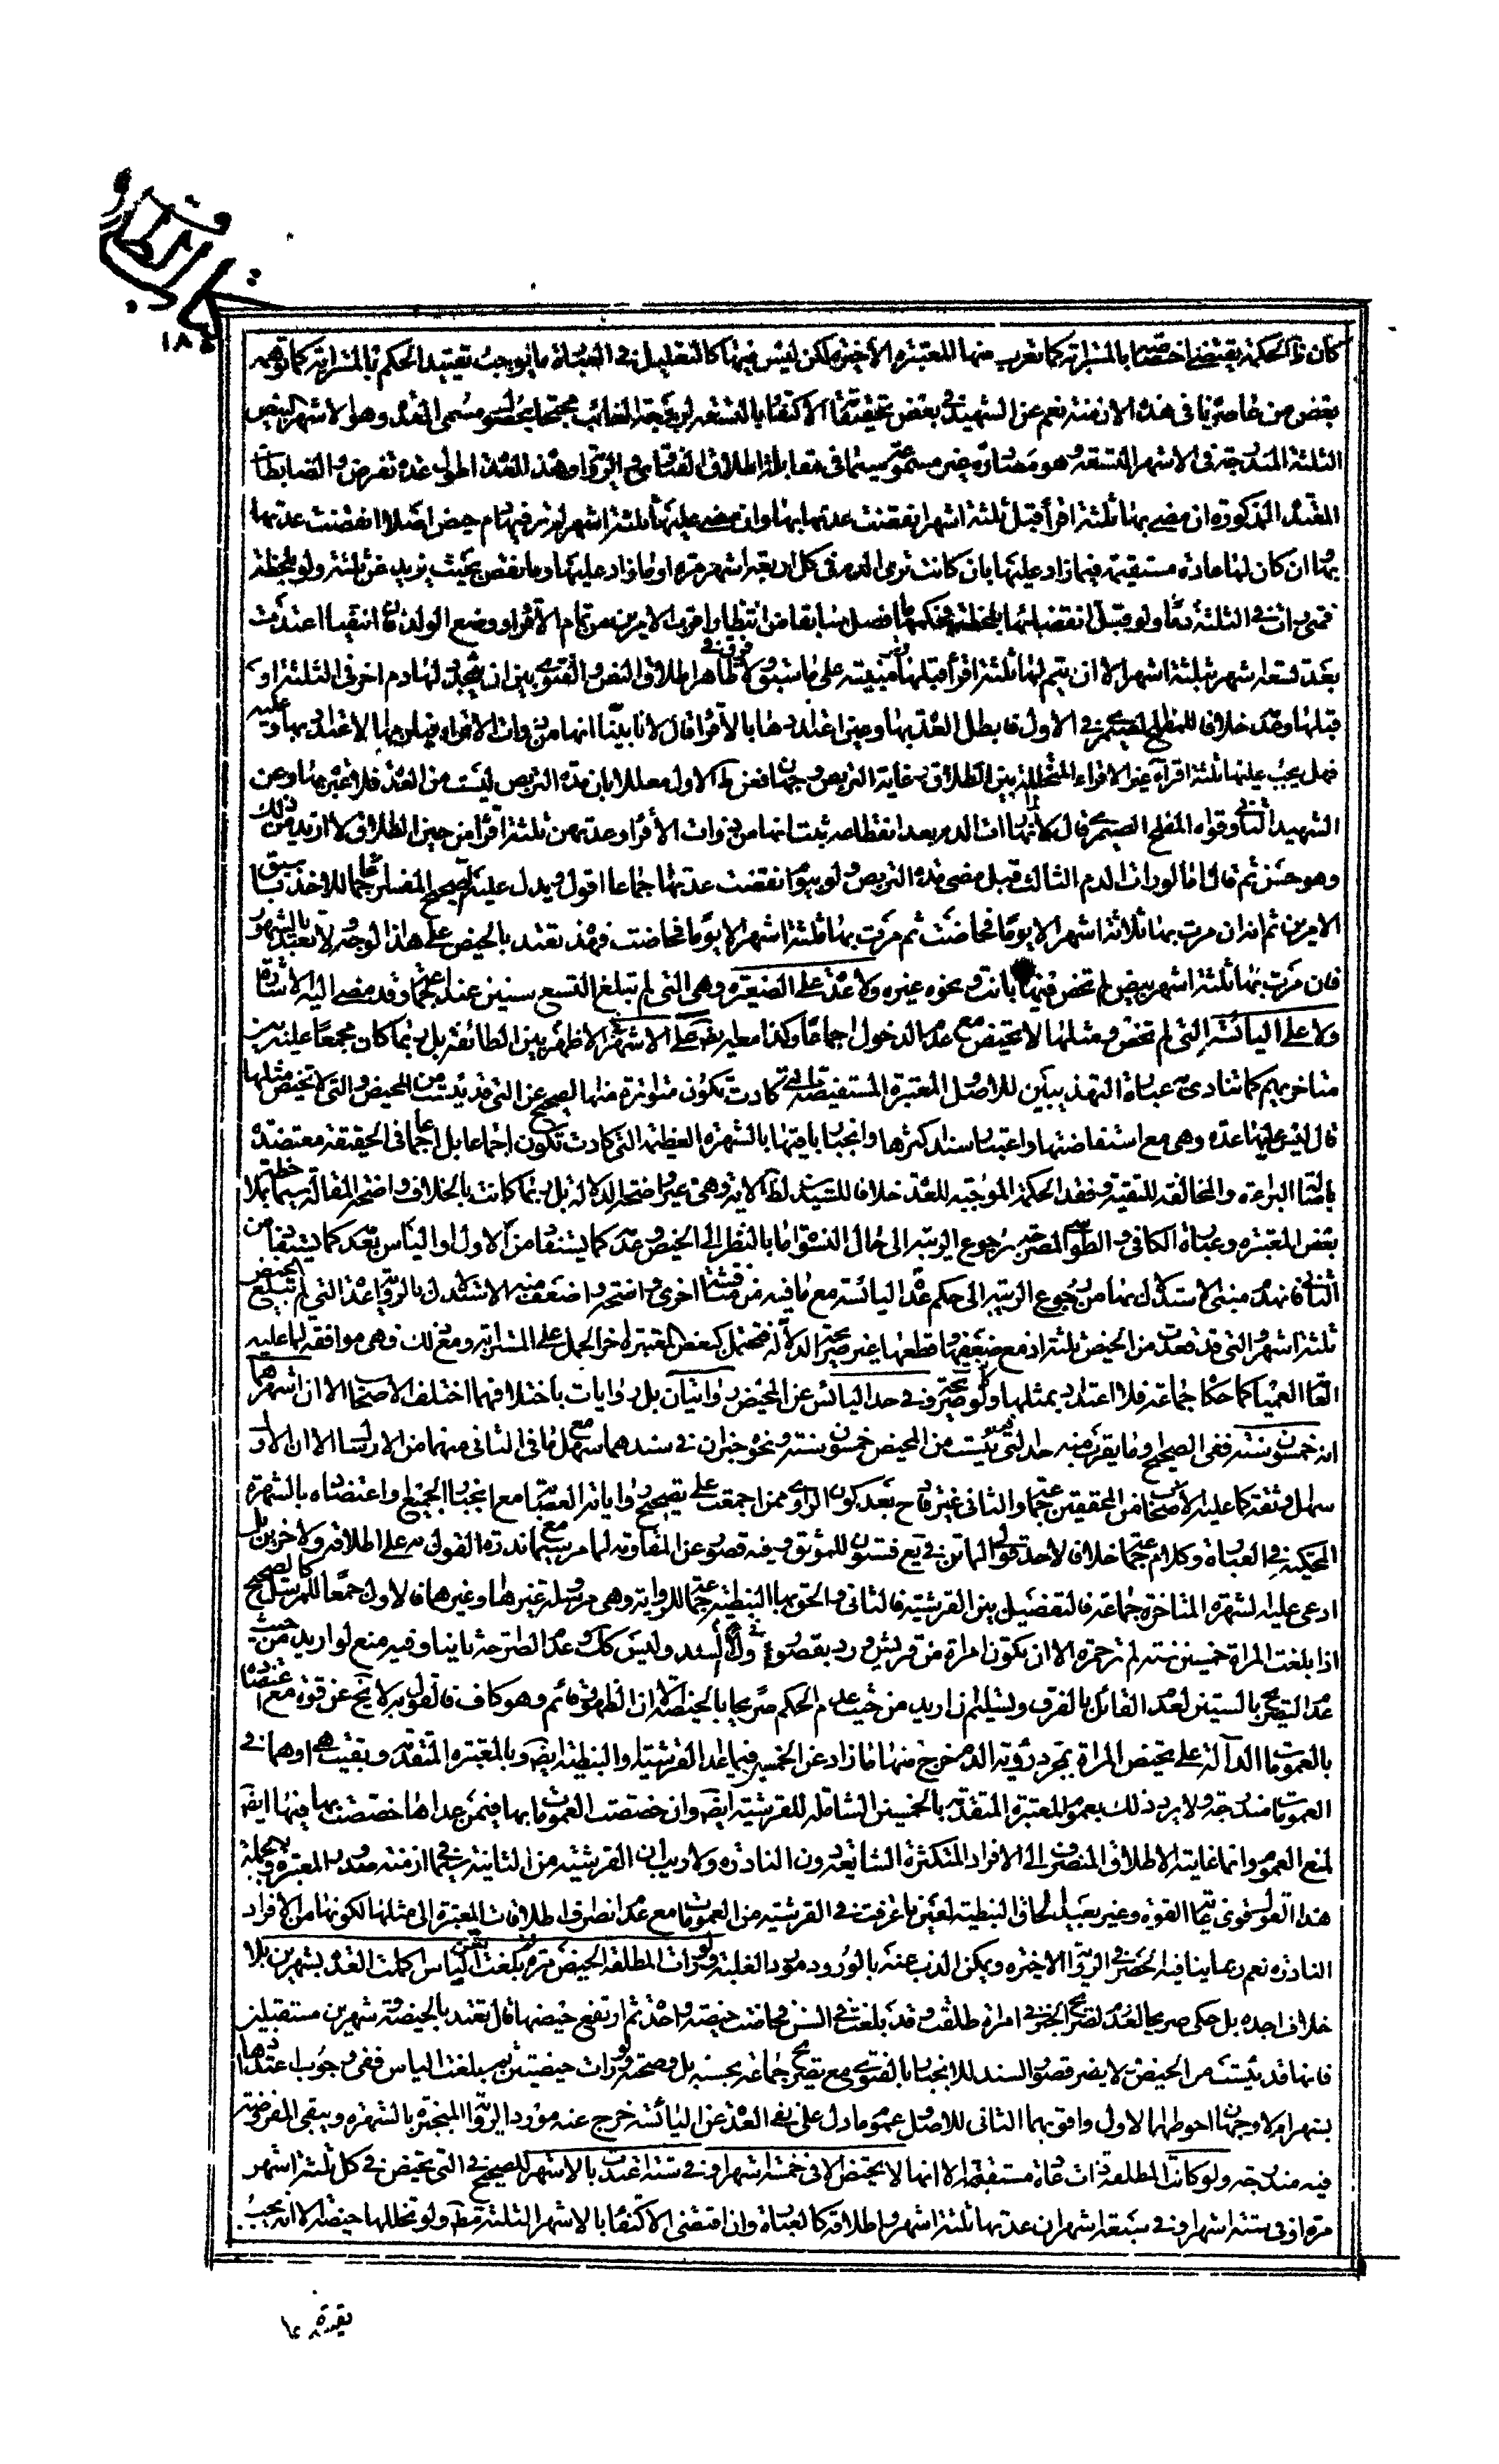 كتاب الطلاق
١٨٤
كان ظ الحكمة يقتضى اختصاصها بالمسترابة كما تعرب عنها المعتبرة الأخيرة لكن ليس فيها كالتعليل فى العبارة ما يوجب تقييد الحكم بالمسترابة كما توهمه
بعض من عاصرناه فى هذه الازمنة نعم عن الشهيد فى بعض تحقيقاته الاكتفاء بالتسعة لزوجة الغائب محتجا بحصول مسمى العدة وهو الاشهر البيض
الثلثة المندرجة فى الاشهر التسعة وهو مصادرة غير مسموعة سيما فى مقابلة اطلاق الفتاوى والرواية وهذه العدة اطول عدة تفرض والضابط ان
المعتدة المذكورة ان مضى بها ثلثة اقرأ قبل ثلثة اشهر انقضت عدتها بها وان مضى عليها ثلثة اشهر لم تر فيها دم حيض اصلا انقضت عدتها
بها ان كان لها عادة مستقيمة فيما زاد عليها بان كانت ترى الدم فى كل اربعة اشهر مرة او ما زاد عليها وما نقص بحيث يزيد عن ثلثة ولو بلحظة
فمتى رات فى الثلثة دما ولو قبل انقضائها بلحظة فحكمها ما فصل سابقا من انتظار اقرب الامرين من تمام الاقراء ووضع الولد فان انتفيا اعتدت
بعد تسعة اشهر بثلثة اشهر الا ان يتم لها ثلثة اقرأ قبلها مبنية على ما سبق ولا فرق فى ظاهر اطلاق النص والفتوى بين ان يتجدد لها دم اخر فى الثلثة او
قبلها وعدمه خلافا للمفلح الصيمرى فى الاول فابطل العدة بها وعين اعتدادها بالاقراء قال لانا بينا انها من ذوات الاقراء فيلزمها الاعتداد بها وعليه
فهل يجب عليها ثلثة اقراء غير الاقراء المتخللة بين الطلاق وغاية التربص وجهان فعن ط الاول معللا بان مدة التربص ليست من العدة فلا عبرة بها وعن
الشهيد الثانى وقواه المفلح الصيمرى قال لانها لما رات الدم بعد انقطاعه ثبت انها من ذوات الأقراء وعدتهن ثلثة اقراء من حين الطلاق لا ازيد من ذلك
وهو حسن ثم قال اما لو رات الدم الثالث قبل مضى مدة التربص ولو بيوم انقضت عدتها اجماعا اقول ويدل عليه الصحيح المفسر عموما للاخذ باسبق
الامرين ثم انه ان مرت بها ثلاثة اشهر الا يوما فحاضت ثم مرت بها ثلثة اشهر الا يوما فحاضت فهذه تعتد بالحيض على هذا الوجه ولا تعتد بالشهور
فان مرت بها ثلثة اشهر بيض لم تحض فيها بانت ونحوه غيره ولا عدة على الصغيرة وهى التى لم تبلغ التسع سنين عند علمائنا وقد مضى اليه الاشارة
ولا على اليائسة التى لم تحض ومثلها لا تحيض مع عدم الدخول اجماعا وكذا معه ايضا على الاشهر الاظهر بين الطائفة بل ربما كان مجمعا عليه بين
متاخريهم كما تنادى به عبارة التهذيبين للاصل المعتبرة المستفيضة التى كادت تكون متواترة منها الصحيح عن التى قد يئست من المحيض والتى لا تحيض مثلها
قال ليس عليها عدة وهى مع استفاضتها واعتبار سند اكثرها وانجبار باقيها بالشهرة العظيمة التى كادت تكون اجماعا بل اجماعا فى الحقيقة معتضدة
باصالة البراءة والمخالفة للتقية وفقد الحكمة الموجبة للعدة خلافا للسيد لظ الاية وهى غير واضحة الدلالة بل ربما كانت بالخلاف واضحة المقالة سيما بملاحظة
بعض المعتبرة وعبارة الكافى والطوسى المصرحة برجوع الريبة الى حال النسوة اما بالنظر الى الحيض وعدمه كما يستفاد من الاول او الياس بعده كما يستفاد من
الثانى فانهدم مبنى الاستدلال بها من رجوع الريبة الى حكم عدة اليائسة مع ما فيه من مناقشة اخرى واضحة واضعف منه الاستدلال بالرواية عدة التى لم تبلغ الحيض
ثلثة اشهر والتى قد قعدت من الحيض ثلثة اذ مع ضعفها وقطعها غير صريحة الدلالة فتحتمل كبعض المعتبرة الاخر الحمل على المسترابة ومع ذلك فهى موافقة لما عليه
العامة العمياء كما حكاه جماعة فلا اعتداد بمثلها ولو صريحة وفى حد اليائس عن المحيض روايتان بل روايات باختلافهما اختلف الاصحاب الا ان اشهرهما
انه خمسون سنة ففى الصحيح وما يقرب منه حد التى يئست من المحيض خمسون سنة ونحوه خبران فى سندهما سهل مع ما فى الثانى منهما من الارسال الا ان الاول
سهل وثقة كما عليه الاصحاب من المحققين جماعة والثانى غير قادح بعد كون الراوى ممن اجمعت على تصحيح رواياته العصابة مع انجبار الجميع واعتضاده بالشهرة
المحكية فى العبارة وكلام جماعة خلافا لاحد قولى الماتن فى يع فستون للموثق وفيه قصور عن المقاومة لما مر سيما مع ندرة القول به على اطلاقه ولاخرين بل
ادعى عليه لشهرة المتاخرة جماعة فالتفصيل بين القرشية فالثانى والحق بها النبطية جماعة للرواية وهى مرسلة وغيرها وغيرهما فالاول جمعا للمرسل كالصحيح
اذا بلغت المراة خمسين سنة لم تر حمرة الا ان تكون امراة من قريش ورد بقصوره فى الدلالة والسند وليس كك وعدم الصراحة ثابتا وفيه منع لو اريد من حيث
عدم التصريح بالستين لعدم القائل بالفرق وتسليم ان اريد من حيث عدم الحكم صريحا بالحيضية الا ان الظهور قائم وهو كاف فالقول به لا يخ عن قوة مع اعتضاده
بالعمومات الدالة على تحيض المراة بمجرد رؤية الدم خرج منها ما زاد عن الخمسين فيما عدا القرشية والنبطية ايض وبالمعتبرة المتقدمة وبقيت هى او هما فى
العمومات مندرجة ولا يرد ذلك بعموم المعتبرة المتقدمة بالخمسين الشاملة للقرشية ايض وان خصصت العمومات بها فيمن عداها خصصت بها فيها ايض
لمنع العموم وانما غايته الاطلاق المنصرف الى الافراد المتكثرة الشائعة دون النادرة ولا ريب ان القرشية من الثانية سيما فى ازمنة صدور المعتبرة وبالجملة
هذا القول قوى غاية القوة وغير بعيد الحاق النبطية لعين ما عرفت فى القرشية من العمومات مع عدم انصراف اطلاقات المعتبرة الى مثلها لكونها من الافراد
النادرة نعم ربما ينافيه الحصر فى الرواية الاخيرة ويمكن الذب عنه بالورود مورد الغلبة ولو رات المطلقة الحيض مرة ثم بلغت الياس اكملت العدة بشهرين بلا
خلاف اجده بل حكى صريحا لعدة لصريح الخبر فى امراة طلقت وقد بلغت فى السن فحاضت حيضة واحدة ثم ارتفع حيضها قال تعتد بالحيضة وشهرين مستقبلين
فانها قد يئست من الحيض ولا يضر قصور السند للانجبار بالفتوى مع تصريح جماعة بحسنه بل وصحته ولو رات حيضتين ثم بلغت الياس ففى وجوب اعتدادها
بشهر ام لا وجهان احوطهما الاول واوفق بهما الثانى للاصل وعموم ما دل على نفى العدة عن اليائسة خرج عنه مورد الرواية المنجبرة بالشهرة ويبقى المفروضة
فيه مندرجة ولو كانت المطلقة ذات عادة مستقيمة الا انها لا تحيض الا فى خمسة اشهر او فى ستة اعتدت بالاشهر للصحيح فى التى تحيض فى كل ثلثة اشهر
مرة او فى ستة اشهر او فى سبعة اشهر ان عدتها ثلثة اشهر واطلاقه كالعبارة وان اقتضى الاكتفاء بالاشهر الثلثة مط ولو تخللها حيضة الا انه يجب